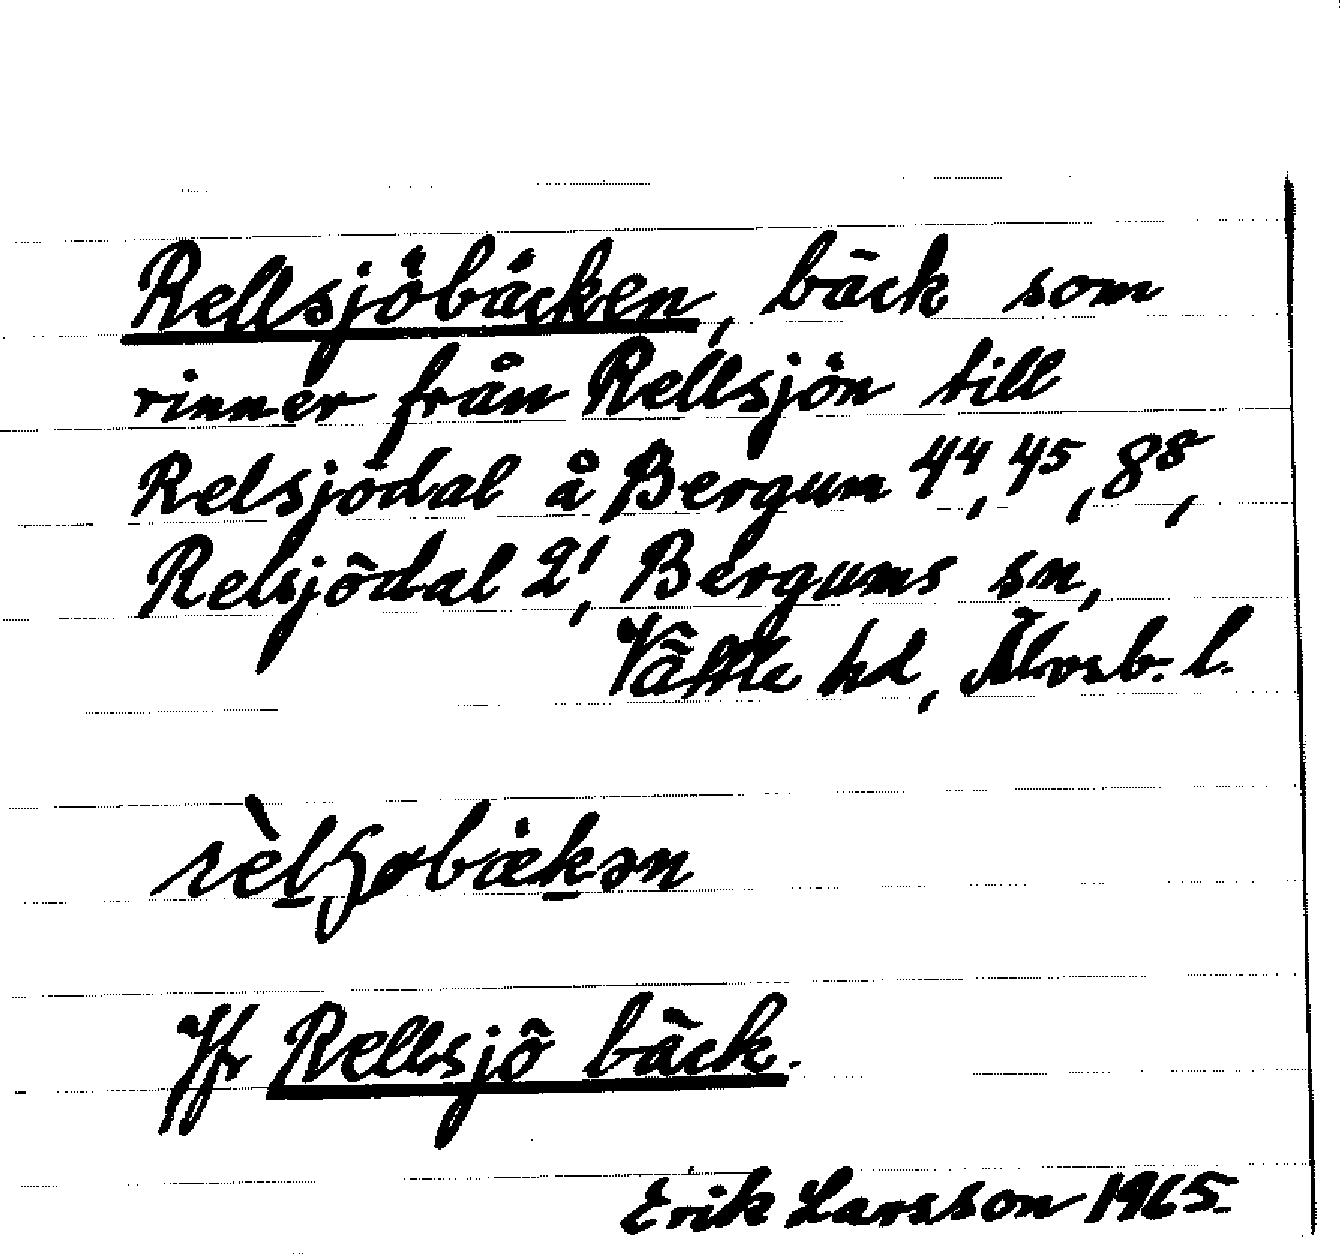 Rellsjöbäcken, bäck som
rinner från Rellsjön till
Relsjödal å Bergum 44, 45, 88,
Relsjödal 2¹, Bergums sn,
Vättle hd, Älvsb. l.
Jfr Rellsjö bäck.
Erik Larsson 1965.